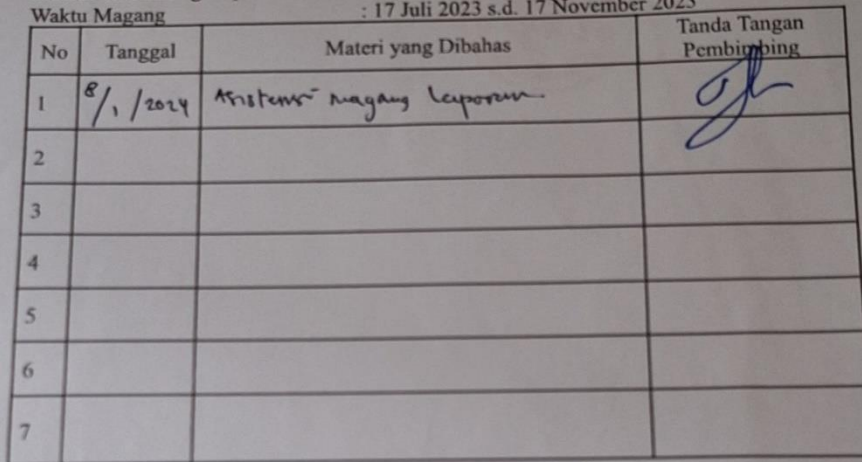 Waktu Magang : 17 Juli 2023 s.d. 17 November 2023
No Tanggal Materi yang Dibahas Tanda Tangan Pembimbing
1 8/1/2024 Asistensi magang laporan
2
3
4
5
6
7